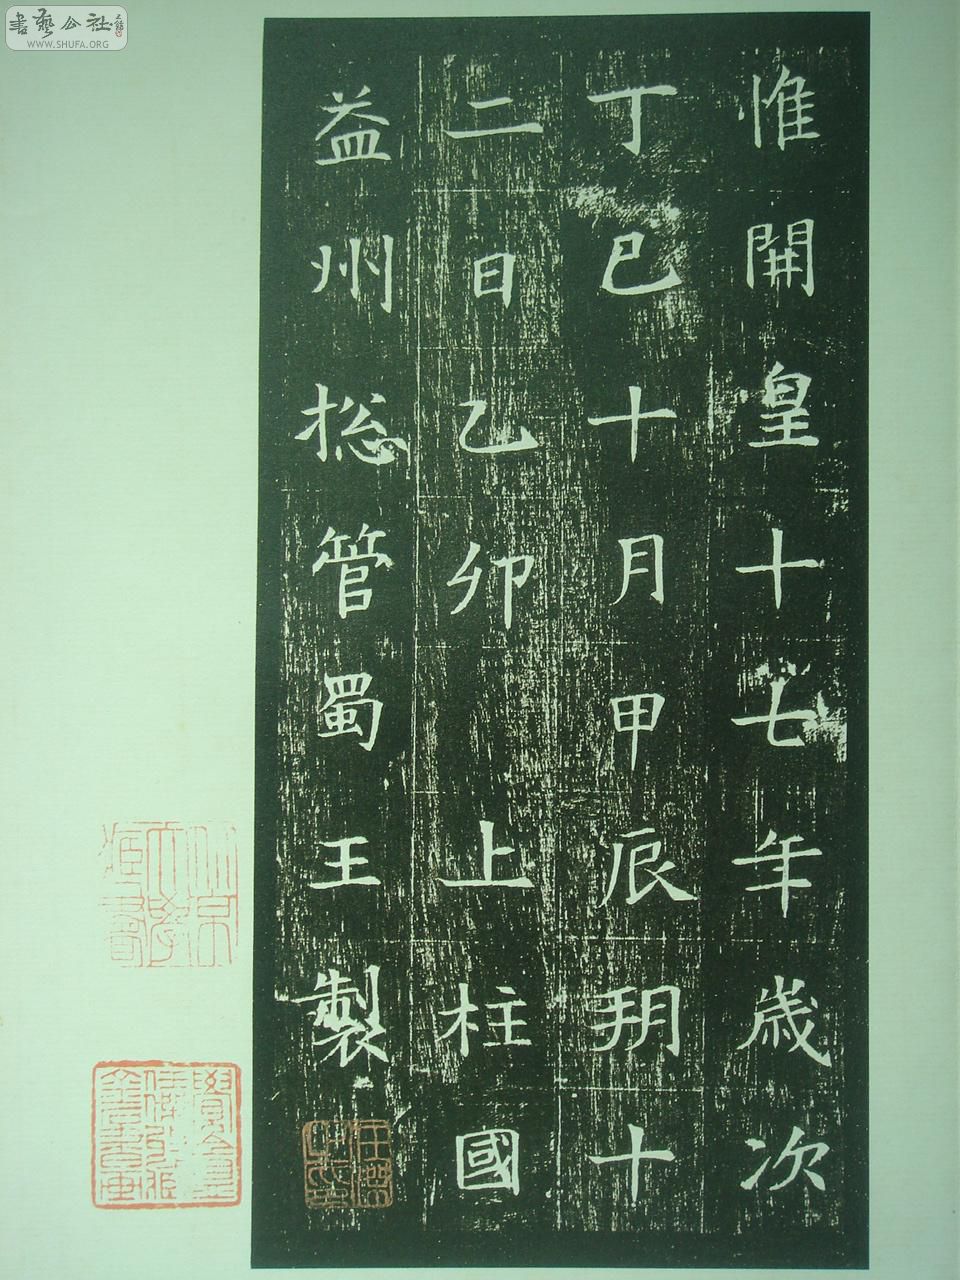 惟開皇十七年歲次
丁巳十月甲辰朔十
二日乙卯 上柱國
益州揔管蜀王製
北京
大學
書藝公社
WWW.SHUFA.ORG